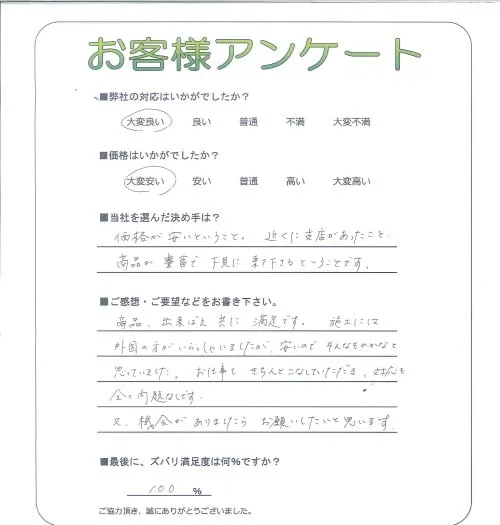 お客様アンケート
■弊社の対応はいかがでしたか？
大変良い 良い 普通 不満 大変不満
■価格はいかがでしたか？
大変安い 安い 普通 高い 大変高い
■当社を選んだ決め手は？
価格が安いということ。近くに支店があったこと
商品が豊富で下見に来て下さるということです。
■ご感想・ご要望などをお書き下さい。
商品、出来ばえ共に満足です。施工には
外国の方がいらっしゃいましたが、安いのでそんなものかなと
思っていました。お仕事もきちんとこなしていただき、対応も
全く問題なしです。
又、機会がありましたらお願いしたいと思います。
■最後に、ズバリ満足度は何%ですか？
100 %
ご協力頂き、誠にありがとうございました。